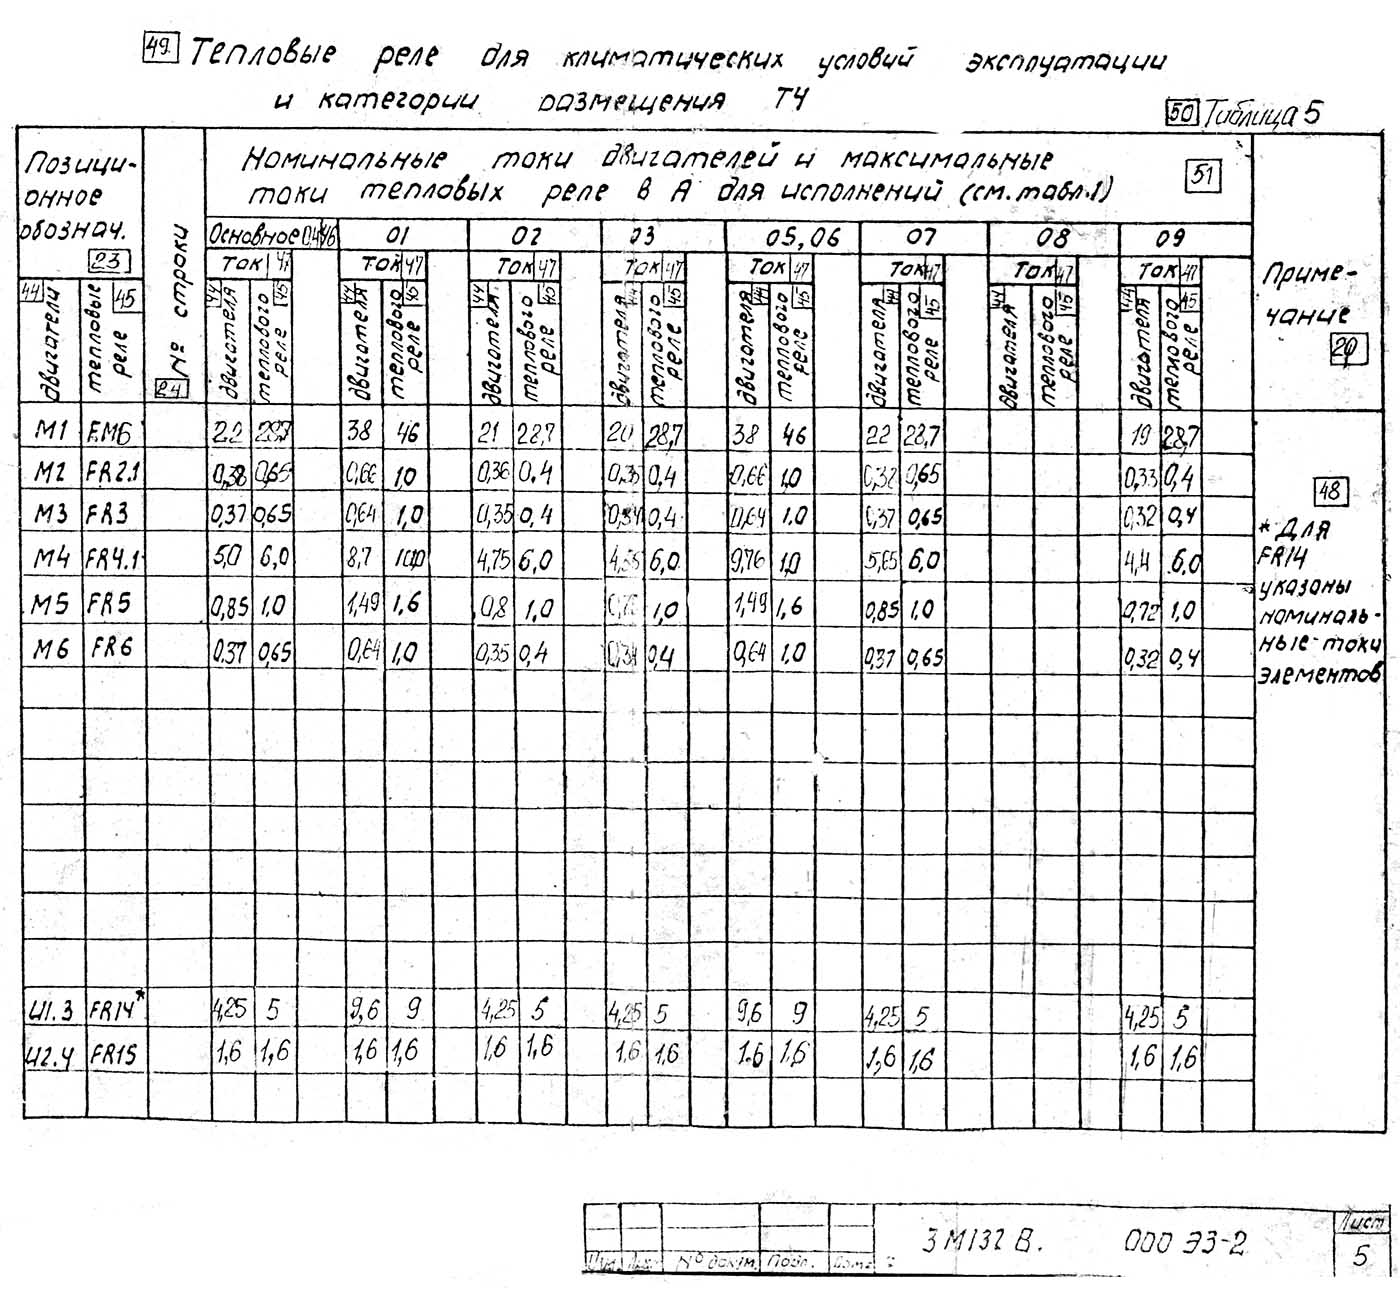 49 Тепловые реле для климатических условий эксплуатации
и категории размещения Т4
50 Таблица 5
Позиционное обознач. 23
№ строки 24
Номинальные токи двигателей и максимальные
токи тепловых реле в А для исполнений (см. табл.1) 51
Примечание 20
Основное 01 02 03 05,06 07 08 09
Ток 47 Ток 47 Ток 47 Ток 47 Ток 47 Ток 47 Ток 47 Ток 47
44 двигатели 45 тепловые реле
44 двигателя 45 теплового реле 44 двигателя 45 теплового реле 44 двигателя 45 теплового реле 44 двигателя 45 теплового реле 44 двигателя 45 теплового реле 44 двигателя 45 теплового реле 44 двигателя 45 теплового реле 44 двигателя 45 теплового реле
М1 22 28,7 38 46 21 28,7 20 28,7 38 46 22 28,7 19 28,7
М2 FR2.1 0,38 0,65 0,66 1,0 0,36 0.4 0,35 0,4 0,66 1,0 0,38 0,65 0,33 0,4
М3 FR3 0,37 0,65 0,64 1,0 0,35 0,4 0,34 0,4 0,64 1,0 0,37 0,65 0,32 0,4
М4 FR4.1 5,0 6,0 8,7 10,0 4,75 6,0 6,0 9,76 1,0 5,65 6,0 4,4 6,0
М5 FR5 0,85 1,0 1,49 1,6 0,8 1,0 1,0 1,49 1,6 0,85 1,0 0,72 1,0
М6 FR6 0.37 0,65 0,64 1,0 0,35 0,4 0,34 0,4 0,64 1,0 0,37 0,65 0,32 0,4
48
* Для
FR14
указаны
номиналь-
ные токи
элементов
И1.3 FR14* 4,25 5 9,6 9 4,25 5 4,25 5 9,6 9 4,25 5 4,25 5
И2.4 FR15 1,6 1,6 1,6 1,6 1,6 1,6 1,6 1,6 1.6 1.6 1,6 1,6 1,6 1,6
3М132 В. 000 Э3-2
Лист
5
№ докум. Подп. Дата